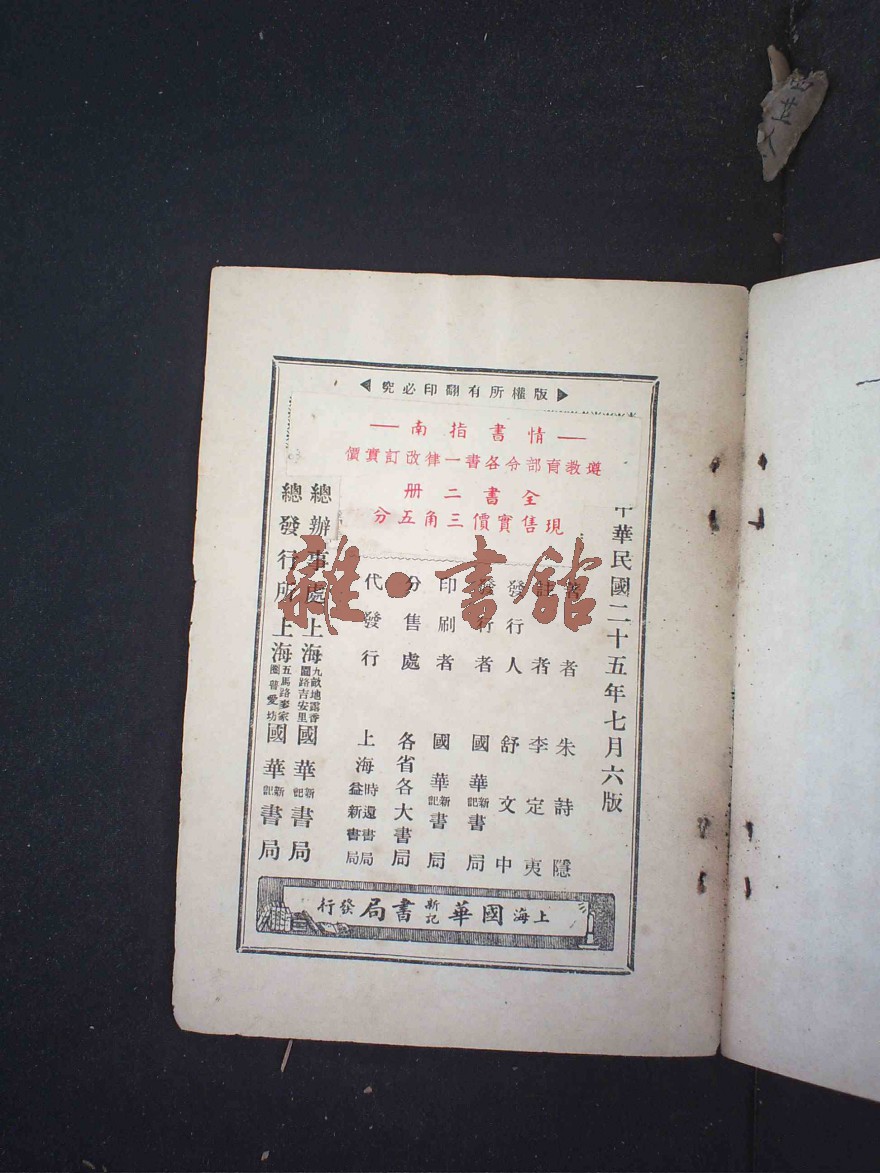 版權所有翻印必究
情書指南
遵教育部令各書一律改訂實價
全書二册
現售實價三角五分
中華民國二十五年七月六版
著者 朱詩隱
註者 李定夷
發行人 舒文中
發行者 國華新記書局
印刷者 國華新記書局
分售處 各省各大書局
代發行 上海時還書局 益新書局
總辦事處 上海九畝地露香園路吉安里 國華新記書局
總發行所 上海五馬路麥家圈普愛坊 國華新記書局
上海國華新記書局發行
雜·書館